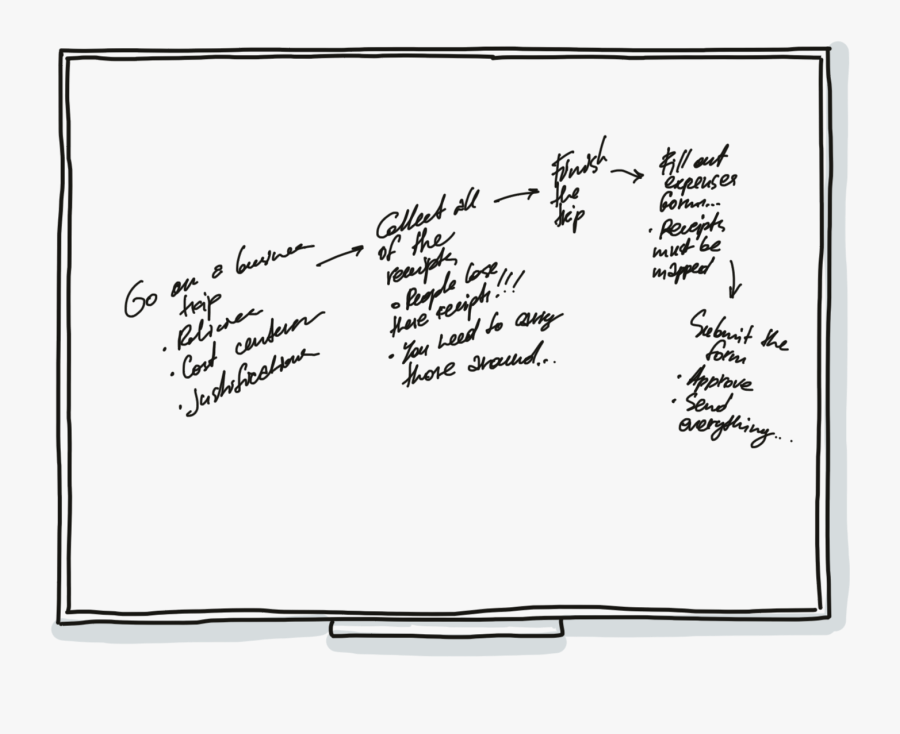 Go on a business
trip
• Policies
• Cost centers
• Justifications
Collect all
of the
receipts
• People lose
these receipts!!!
• You need to carry
those around...
Finish
the
trip
Fill out
expenses
form...
• Receipts
must be
mapped
Submit the
form
• Approve
• Send
everything...